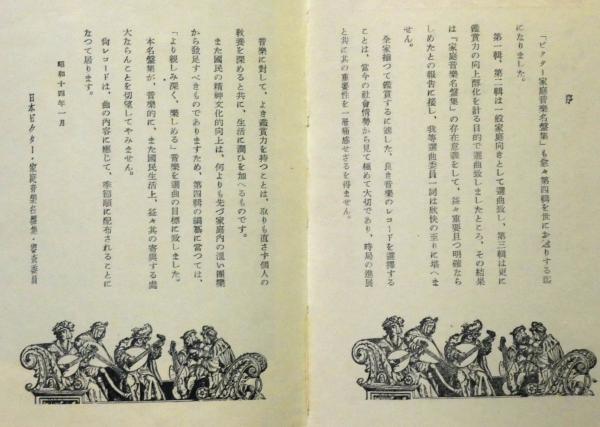 序
「ビクター家庭音樂名盤集」も愈々第四輯を世にお送りする運
になりました。
第一輯、第二輯は一般家庭向きとして選曲致し、第三輯は更に
鑑賞力の向上醇化を計る目的で選曲致しましたところ、その結果
は『家庭音樂名盤集』の存在意義をして、益々重要且つ明確なら
しめたとの報告に接し、我等選曲委員一同は欣快の至りに堪へま
せん。
全家揃つて鑑賞するに適した、良き音樂のレコードを選擇する
ことは、當今の社會情勢から見て極めて大切であり、時局の進展
と共に其の重要性を一層痛感せざるを得ません。
音樂に對して、よき鑑賞力を持つことは、取りも直さず個人の
教養を深めると共に、生活に潤ひを加へるものです。
また國民の精神文化的向上は、何よりも先づ家庭內の溫い團欒
から發足すべきものでありますため、第四輯の編纂に當つては、
「より親しみ深く、樂しめる」音樂を選曲の目標に致しました。
本名盤集が、音樂的に、また國民生活上、益々其の寄與する處
大ならんことを切望してやみません。
尙レコードは、曲の內容に應じて、季節順に配布されることに
なつて居ります。
昭和十四年一月
日本ビクター・家庭音樂名盤集・審査委員